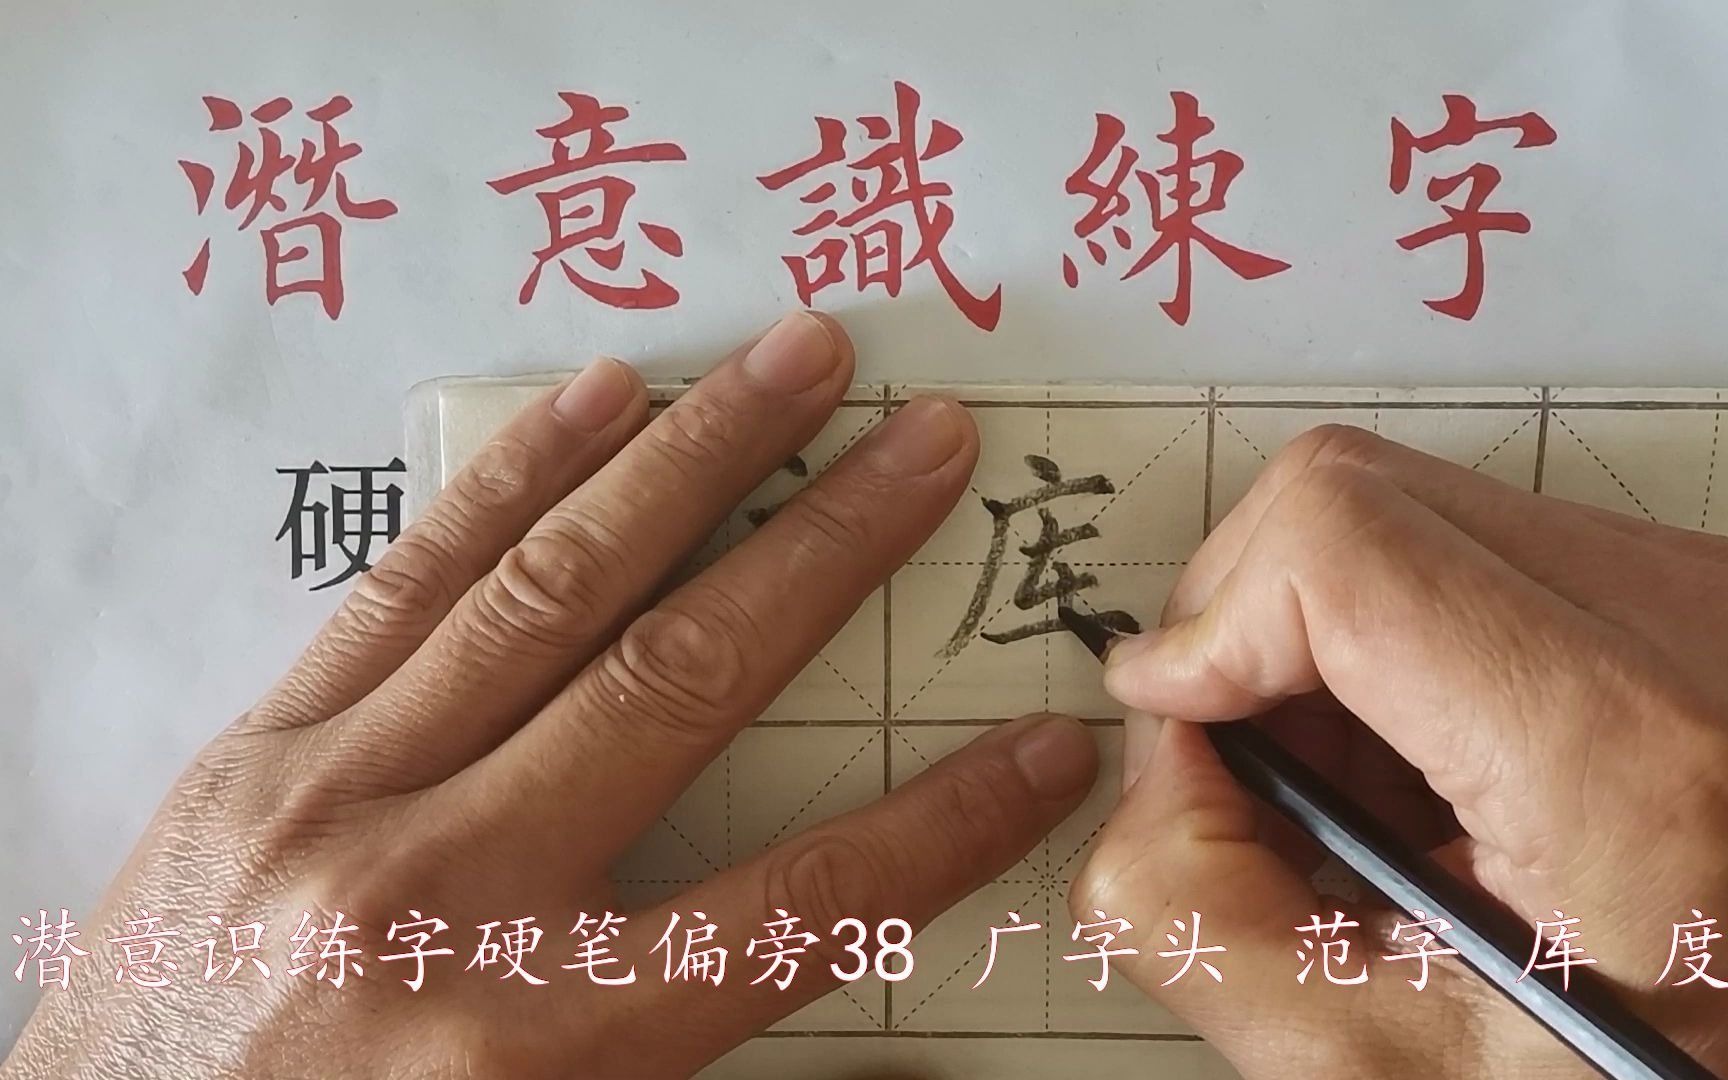 潛意識練字
硬
库
潜意识练字硬笔偏旁38 广字头 范字 库 度